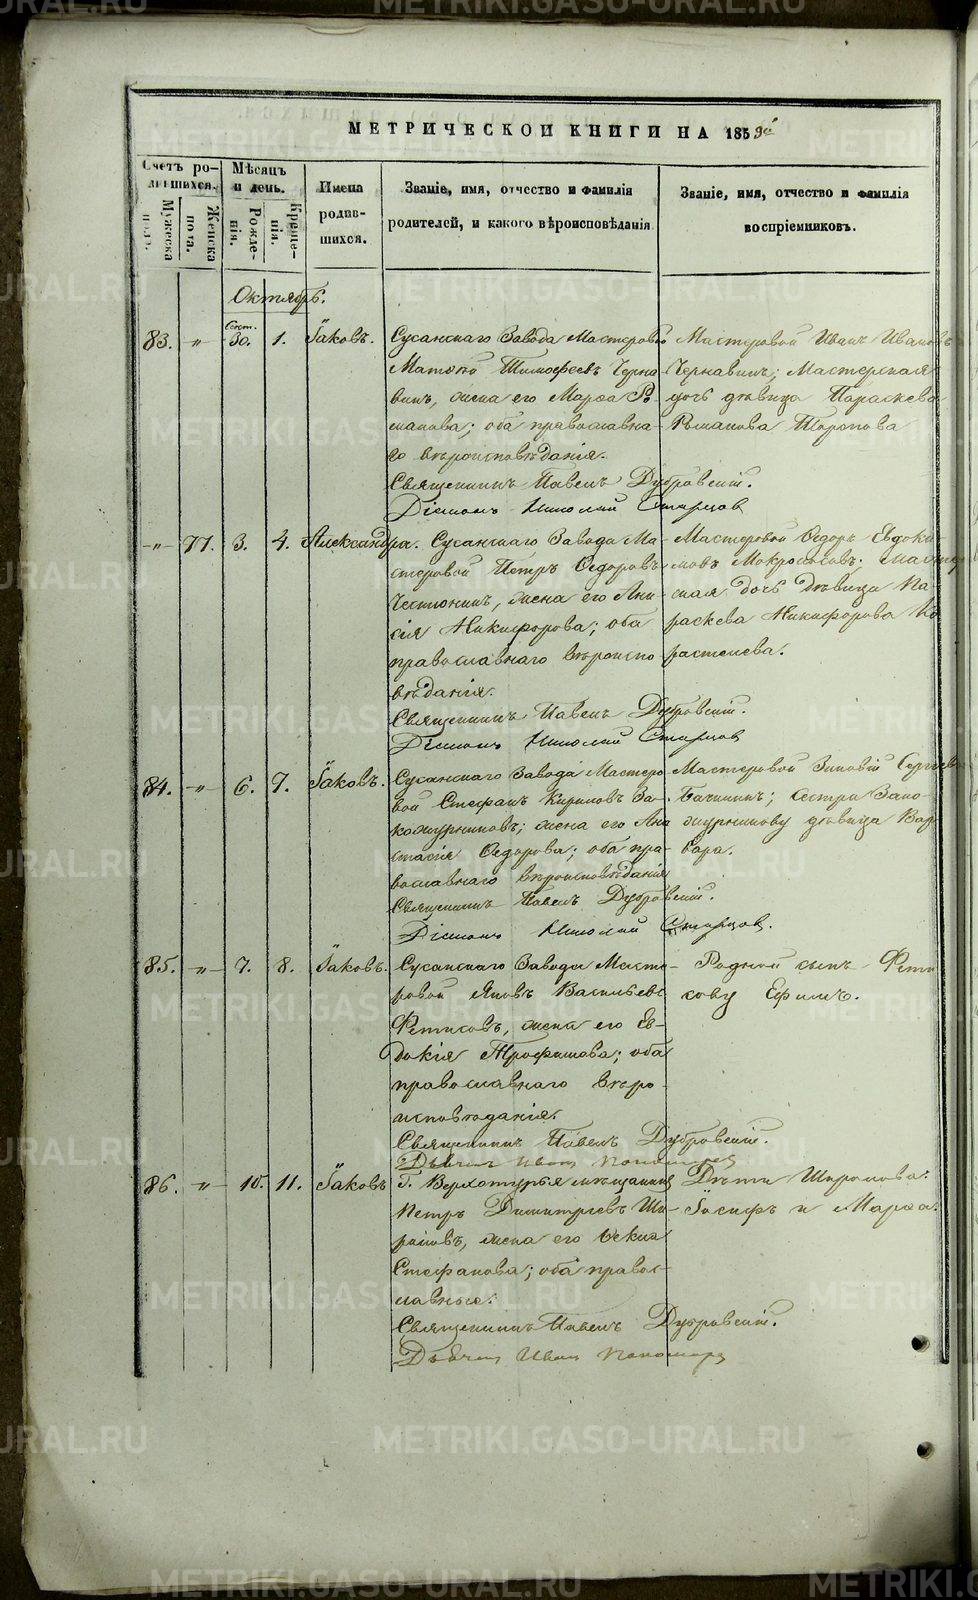 МЕТРИЧЕСКОЙ КНИГИ НА 1853й
Счетъ ро-
дившихся.
Мѣсяцъ
и день.
Имена
родив-
шихся.
Званіе, имя, отчество и фамилія
родителей, и какого вѣроисповѣданія
Званіе, имя, отчество и фамилія
воспріемниковъ.
Мужеска
пола.
Женска
пола.
Рожде-
нія.
Креще-
нія.
Октябрь.
83. „ Сент. 30. 1. Іаковъ.
Сусанскаго Завода Мастеровой
Матѳей Тимоѳеевъ Черна-
винъ, жена его Марѳа Ро-
манова; оба православна-
го вѣроисповѣданія.
Священникъ Павелъ Дубровскій.
Діаконъ Николай Старцов
Мастеровой Иванъ Ивановъ
Чернавинъ; Мастерская
дочь дѣвица Параскева
Романова Торопова
„ 77. 3. 4. Александра.
Сусанскаго Завода Ма-
стеровой Петръ Ѳедоровъ
жена его Ани-
сія Никифорова; оба
православнаго вѣроиспо-
вѣданія.
Священникъ Павелъ Дубровскій.
Діаконъ Николай Старцов
Мастеровой Ѳедоръ Евдоки-
мовъ Мокроносовъ; Мастер
ская дочь дѣвица Па-
раскева Никифорова Ко
растелева.
84. „ 6. 7. Іаковъ.
Сусанскаго Завода Мастеро-
вой Стефанъ Кириловъ За-
кожурниковъ; жена его Ана
стасія Ѳедорова; оба пра-
вославнаго вѣроисповѣданія
Священникъ Павелъ Дубровскій.
Діаконъ Николай Старцов.
Мастеровой Зиновій Сергѣевъ
Бачининъ; сестра Зако-
журникову дѣвица Вар
вара.
85. „ 7. 8. Іаковъ.
Сусанскаго Завода Масте-
ровой Яковъ Васильевъ
Фетисовъ, жена его Ев-
докія Трофимова; оба
православнаго вѣро-
исповѣданія.
Священникъ Павелъ Дубровскій.
Дьячекъ Иван Пономарев
Родной сынъ Фети
сову Ефимъ.
86. „ 10. 11. Іаковъ
г. Верхотурья мѣщанинъ
Петръ Димитріевъ Ши-
жена его
Стефанова; оба правос-
лавные.
Священникъ Павелъ Дубровскій.
Дьячек Иван Пономарев
Дѣти
Іосифъ и Марѳа.
METRIKI.GASO-URAL.RU